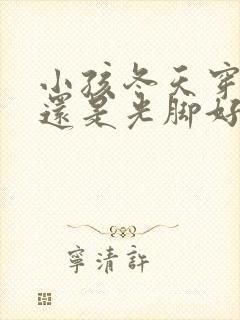 小孩冬天穿
還是光脚好
寧清許